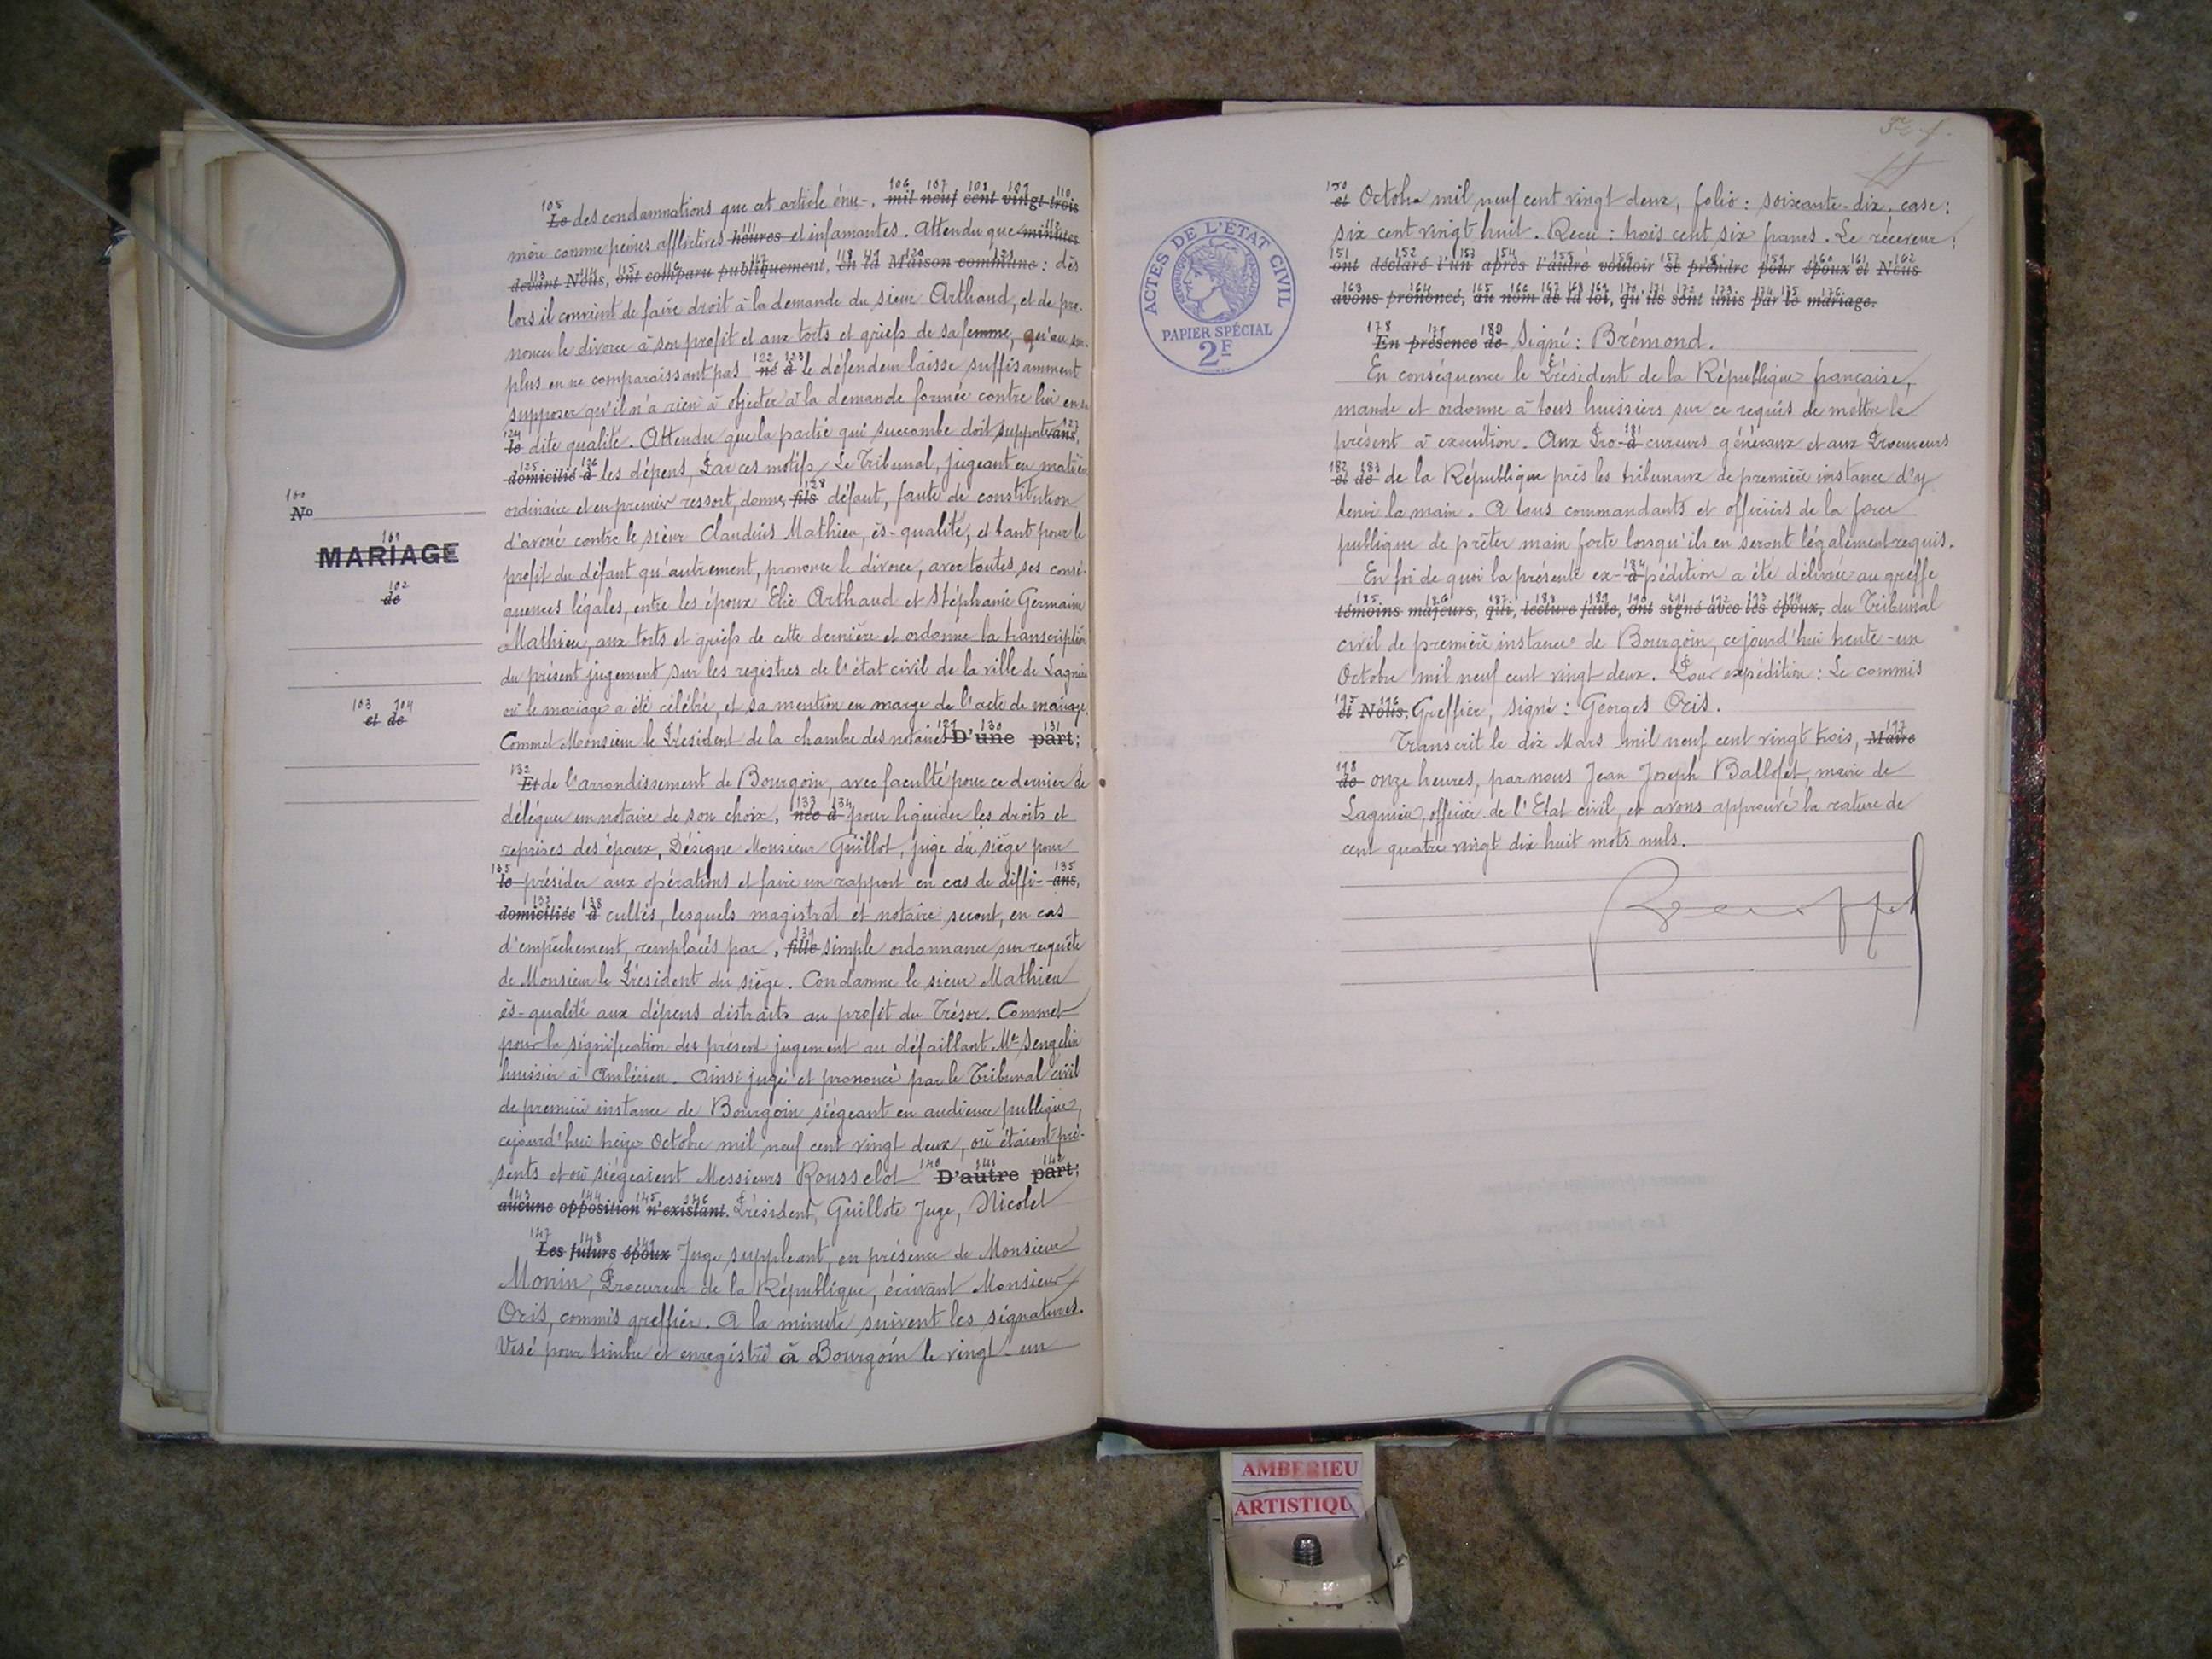 100
No
101
MARIAGE
102
de
103 104
et de
105 106 107 108 109 110
Le des condamnations que cet article énu-, mil neuf cent vingt-trois
111 112
mère comme peines afflictives heures et infamantes. Attendu que minutes
113 114 115 116 117 118 119 120 121
devant Nous, ont comparu publiquement, en la Maison commune : dès
lors il convient de faire droit à la demande du sieur Arthaud, et de pro-
noncer le divorce à son profit et aux torts et griefs de sa femme, qu'au sur-
122 123
plus en ne comparaissant pas né à le défendeur laisse suffisamment
supposer qu'il n'a rien à objecter à la demande formée contre lui en sa
124
le dite qualité. Attendu que la partie qui succombe doit supporter ans,
125 126
domicilié à les dépens, Par ces motifs, Le Tribunal, jugeant en matière
128
ordinaire et en premier ressort, donne, fils défaut, faute de constitution
d'avoué contre le sieur Claudius Mathieu, ès-qualité, et tant pour le
profit du défaut qu'autrement, prononce le divorce, avec toutes ses consé-
quences légales, entre les époux Elie Arthaud et Stéphanie Germaine
Mathieu, aux torts et griefs de cette dernière et ordonne la transcription
du présent jugement sur les registres de l'état civil de la ville de Lagnieu
où le mariage a été célébré, et sa mention en marge de l'acte de mariage.
129 130 131
Commet Monsieur le Président de la chambre des notaires D'une part;
132
Et de l'arrondissement de Bourgoin, avec faculté pour ce dernier de
133 134
déléguer un notaire de son choix, née à pour liquider les droits et
reprises des époux, Désigne Monsieur Guillot, juge du siège pour
135 135
le présider aux opérations et faire un rapport en cas de diffi- ans,
137 138
domiciliée à cultés, lesquels magistrat et notaire seront, en cas
139
d'empêchement, remplacés par, fille simple ordonnance sur requête
de Monsieur le Président du siège. Condamne le sieur Mathieu
ès-qualité aux dépens distraits au profit du Trésor. Commet
pour la signification du présent jugement au défaillant Me Sengelin
huissier à Ambérieu. Ainsi jugé et prononcé par le Tribunal civil
de première instance de Bourgoin siégeant en audience publique,
cejourd'hui treize Octobre mil neuf cent vingt deux, où étaient pré-
140 141 142
sents et où siégeaient Messieurs Rousselot D'autre part;
143 144 145 146
aucune opposition n'existant. Président, Guillote Juge, Nicolet
147 148 149
Les futurs époux Juge suppleant, en présence de Monsieur
Monin, Procureur de la République, écrivant Monsieur
Oris, commis greffier. A la minute suivent les signatures.
Visé pour timbre et enregistré à Bourgoin le vingt-un
ACTES DE L'ÉTAT CIVIL
PAPIER SPÉCIAL
2F
150
et Octobre mil neuf cent vingt deux, folio : soixante-dix, case :
six cent vingt huit. Reçu : trois cent six francs. Le receveur :
151 152 153 154 155 156 157 158 159 160 161 162
ont déclaré l'un après l'autre vouloir se prendre pour époux et Nous
163 164 165 166 167 168 169 170 171 172 173 174 175 176
avons prononcé, au nom de la loi, qu'ils sont unis par le mariage.
178 179 180
En présence de Signé : Brémond.
En conséquence le Président de la République française,
mande et ordonne à tous huissiers sur ce requis de mettre le
181
présent à exécution. Aux Pro- à cureurs généraux et aux Procureurs
182 183
et de de la République près les tribunaux de première instance d'y
tenir la main. A tous commandants et officiers de la force
publique de prêter main forte lorsqu'ils en seront légalement requis.
184
En foi de quoi la présente ex- à pédition a été délivrée au greffe
185 186 187 188 189 190 191 192 193 194
témoins majeurs, qui, lecture faite, ont signé avec les époux, du Tribunal
civil de première instance de Bourgoin, cejourd'hui trente-un
Octobre mil neuf cent vingt deux. Pour expédition : Le commis
195 196
et Nous, Greffier, signé : Georges Oris.
197
Transcrit le dix Mars mil neuf cent vingt trois, Maire
198
de onze heures, par nous Jean Joseph Ballofet, maire de
Lagnieu, officier de l'Etat civil, et avons approuvé la rature de
cent quatre vingt dix huit mots nuls.
AMBERIEU
ARTISTIQU